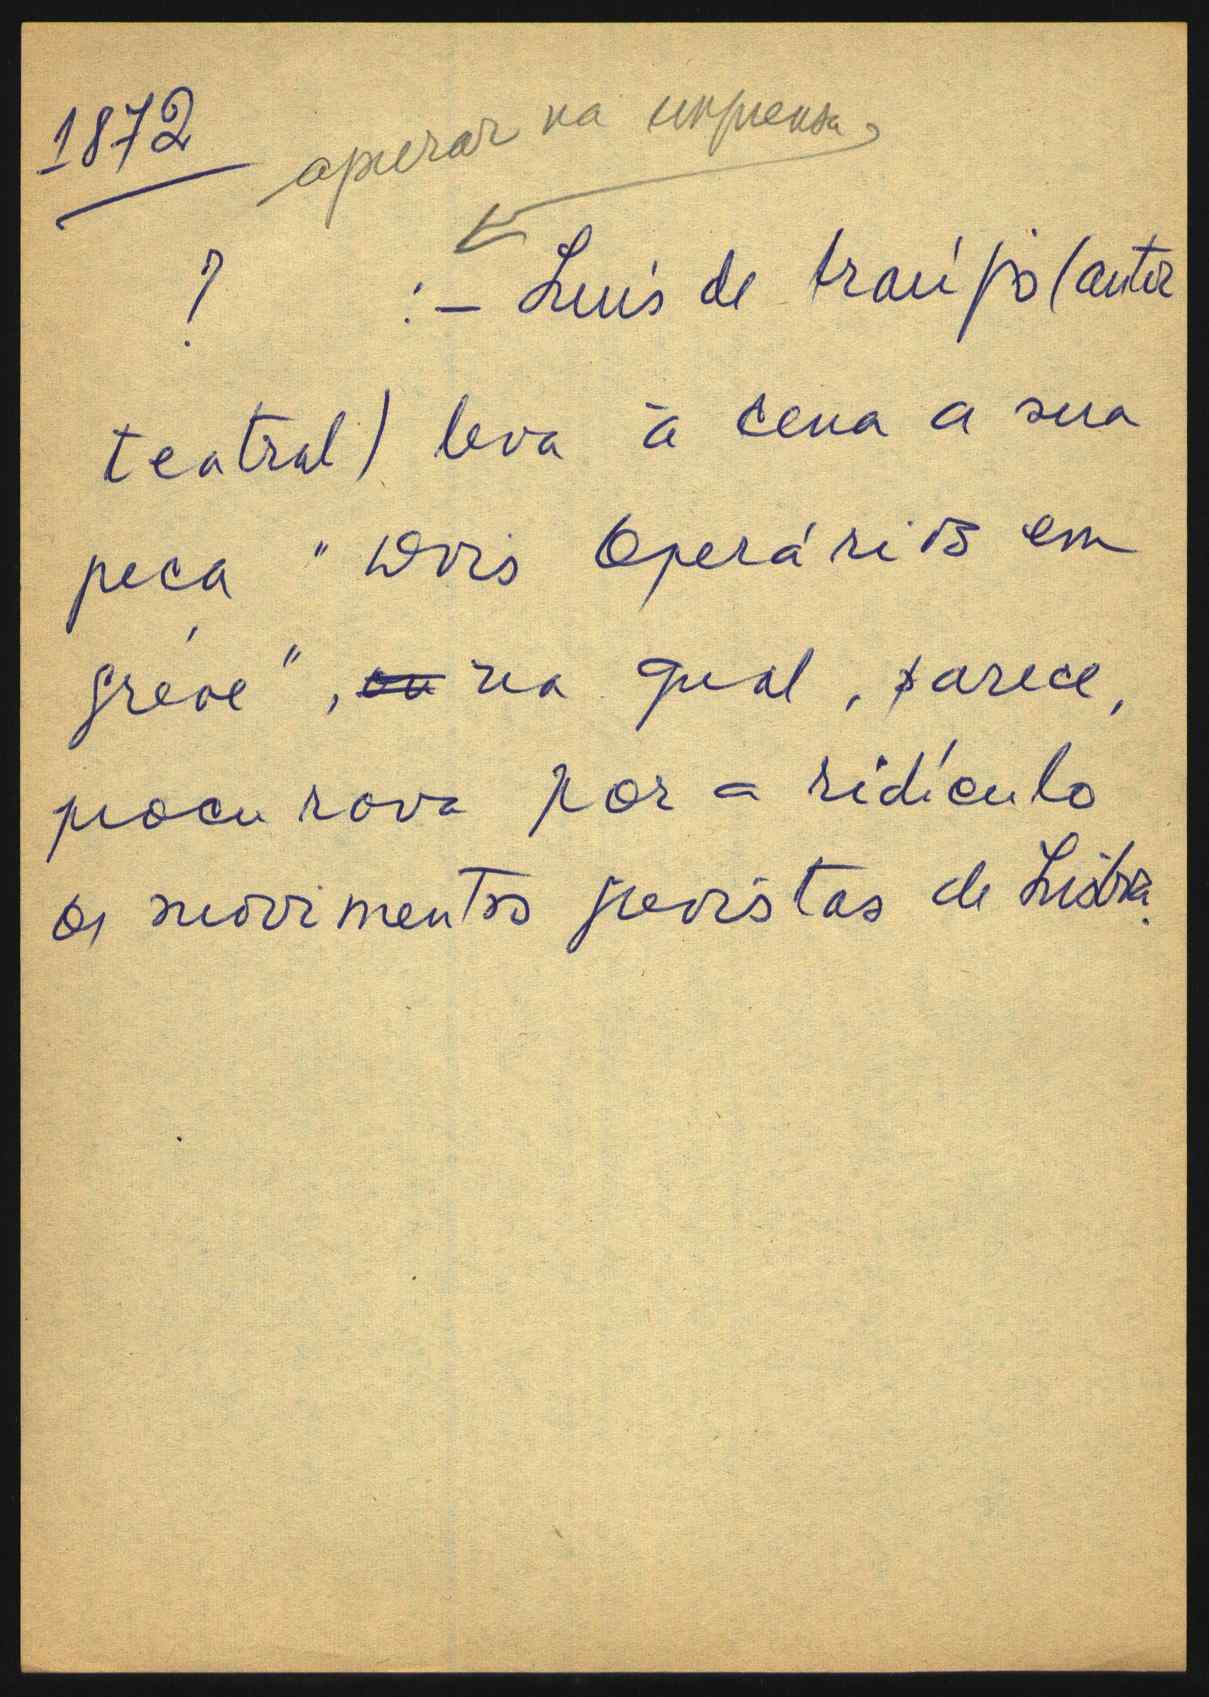 1872
apurar na imprensa
? :- Luís de Araújo (autor
teatral) leva à cena a sua
peça "Dois Operários em
gréve", na qual, parece,
procurava por a ridículo
os movimentos grevistas de Lisboa.